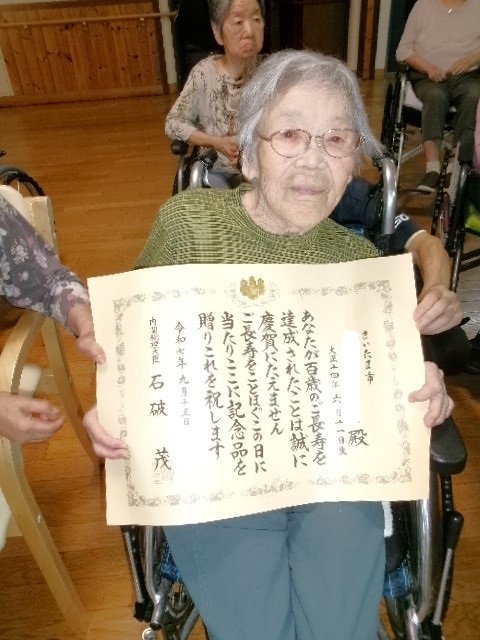 さいたま市
殿
大正十四年 六月十一日生
あなたが百歳のご長寿を
達成されたことは誠に
慶賀にたえません
ご長寿をことほぐこの日に
当たりここに記念品を
贈りこれを祝します
令和七年 九月十五日
内閣総理大臣 石破 茂